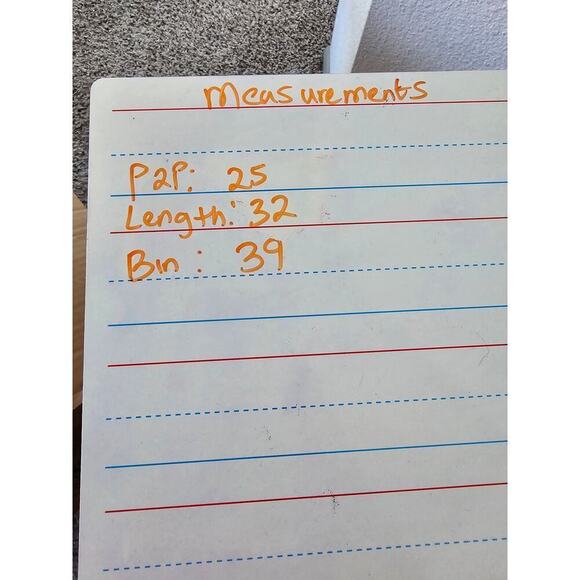 Measurements
P2P: 25
Length: 32
Bin: 39